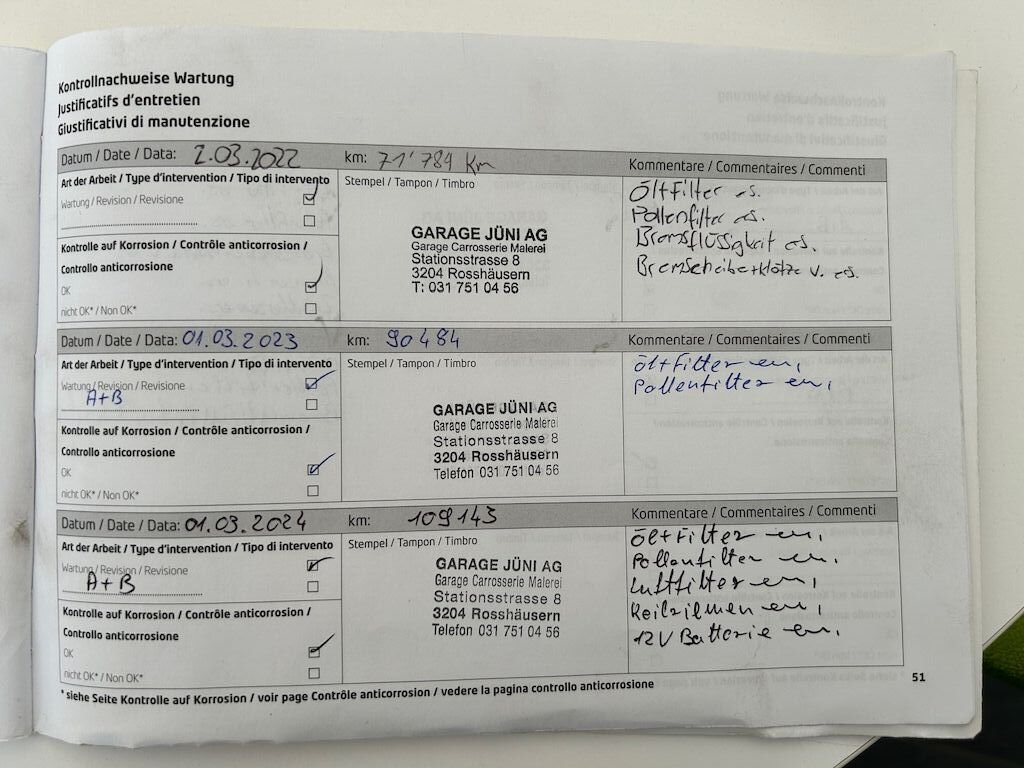 Kontrollnachweise Wartung
Justificatifs d'entretien
Giustificativi di manutenzione
Datum / Date / Data: 2.03.2022 km: 71'789 km Kommentare / Commentaires / Commenti
Art der Arbeit / Type d'intervention / Tipo di intervento
Wartung / Revision / Revisione
Kontrolle auf Korrosion / Contrôle anticorrosion /
Controllo anticorrosione
OK
nicht OK* / Non OK*
Stempel / Tampon / Timbro
GARAGE JÜNI AG
Garage Carrosserie Malerei
Stationsstrasse 8
3204 Rosshäusern
T: 031 751 04 56
Öl+Filter es.
Pollenfilter es.
Bremsflüssigkeit es.
Bremscheibe+klötze v. es.
Datum / Date / Data: 01.03.2023 km: 90484 Kommentare / Commentaires / Commenti
Art der Arbeit / Type d'intervention / Tipo di intervento
Wartung / Revision / Revisione
A+B
Kontrolle auf Korrosion / Contrôle anticorrosion /
Controllo anticorrosione
OK
nicht OK* / Non OK*
Stempel / Tampon / Timbro
GARAGE JÜNI AG
Garage Carrosserie Malerei
Stationsstrasse 8
3204 Rosshäusern
Telefon 031 751 04 56
Öl+Filter en,
Pollenfilter en,
Datum / Date / Data: 01.03.2024 km: 109143 Kommentare / Commentaires / Commenti
Art der Arbeit / Type d'intervention / Tipo di intervento
Wartung / Revision / Revisione
A+B
Kontrolle auf Korrosion / Contrôle anticorrosion /
Controllo anticorrosione
OK
nicht OK* / Non OK*
Stempel / Tampon / Timbro
GARAGE JÜNI AG
Garage Carrosserie Malerei
Stationsstrasse 8
3204 Rosshäusern
Telefon 031 751 04 56
Öl+Filter en,
Pollenfilter en,
Luftfilter en,
Keilriemen en,
12V Batterie en.
* siehe Seite Kontrolle auf Korrosion / voir page Contrôle anticorrosion / vedere la pagina controllo anticorrosione
51